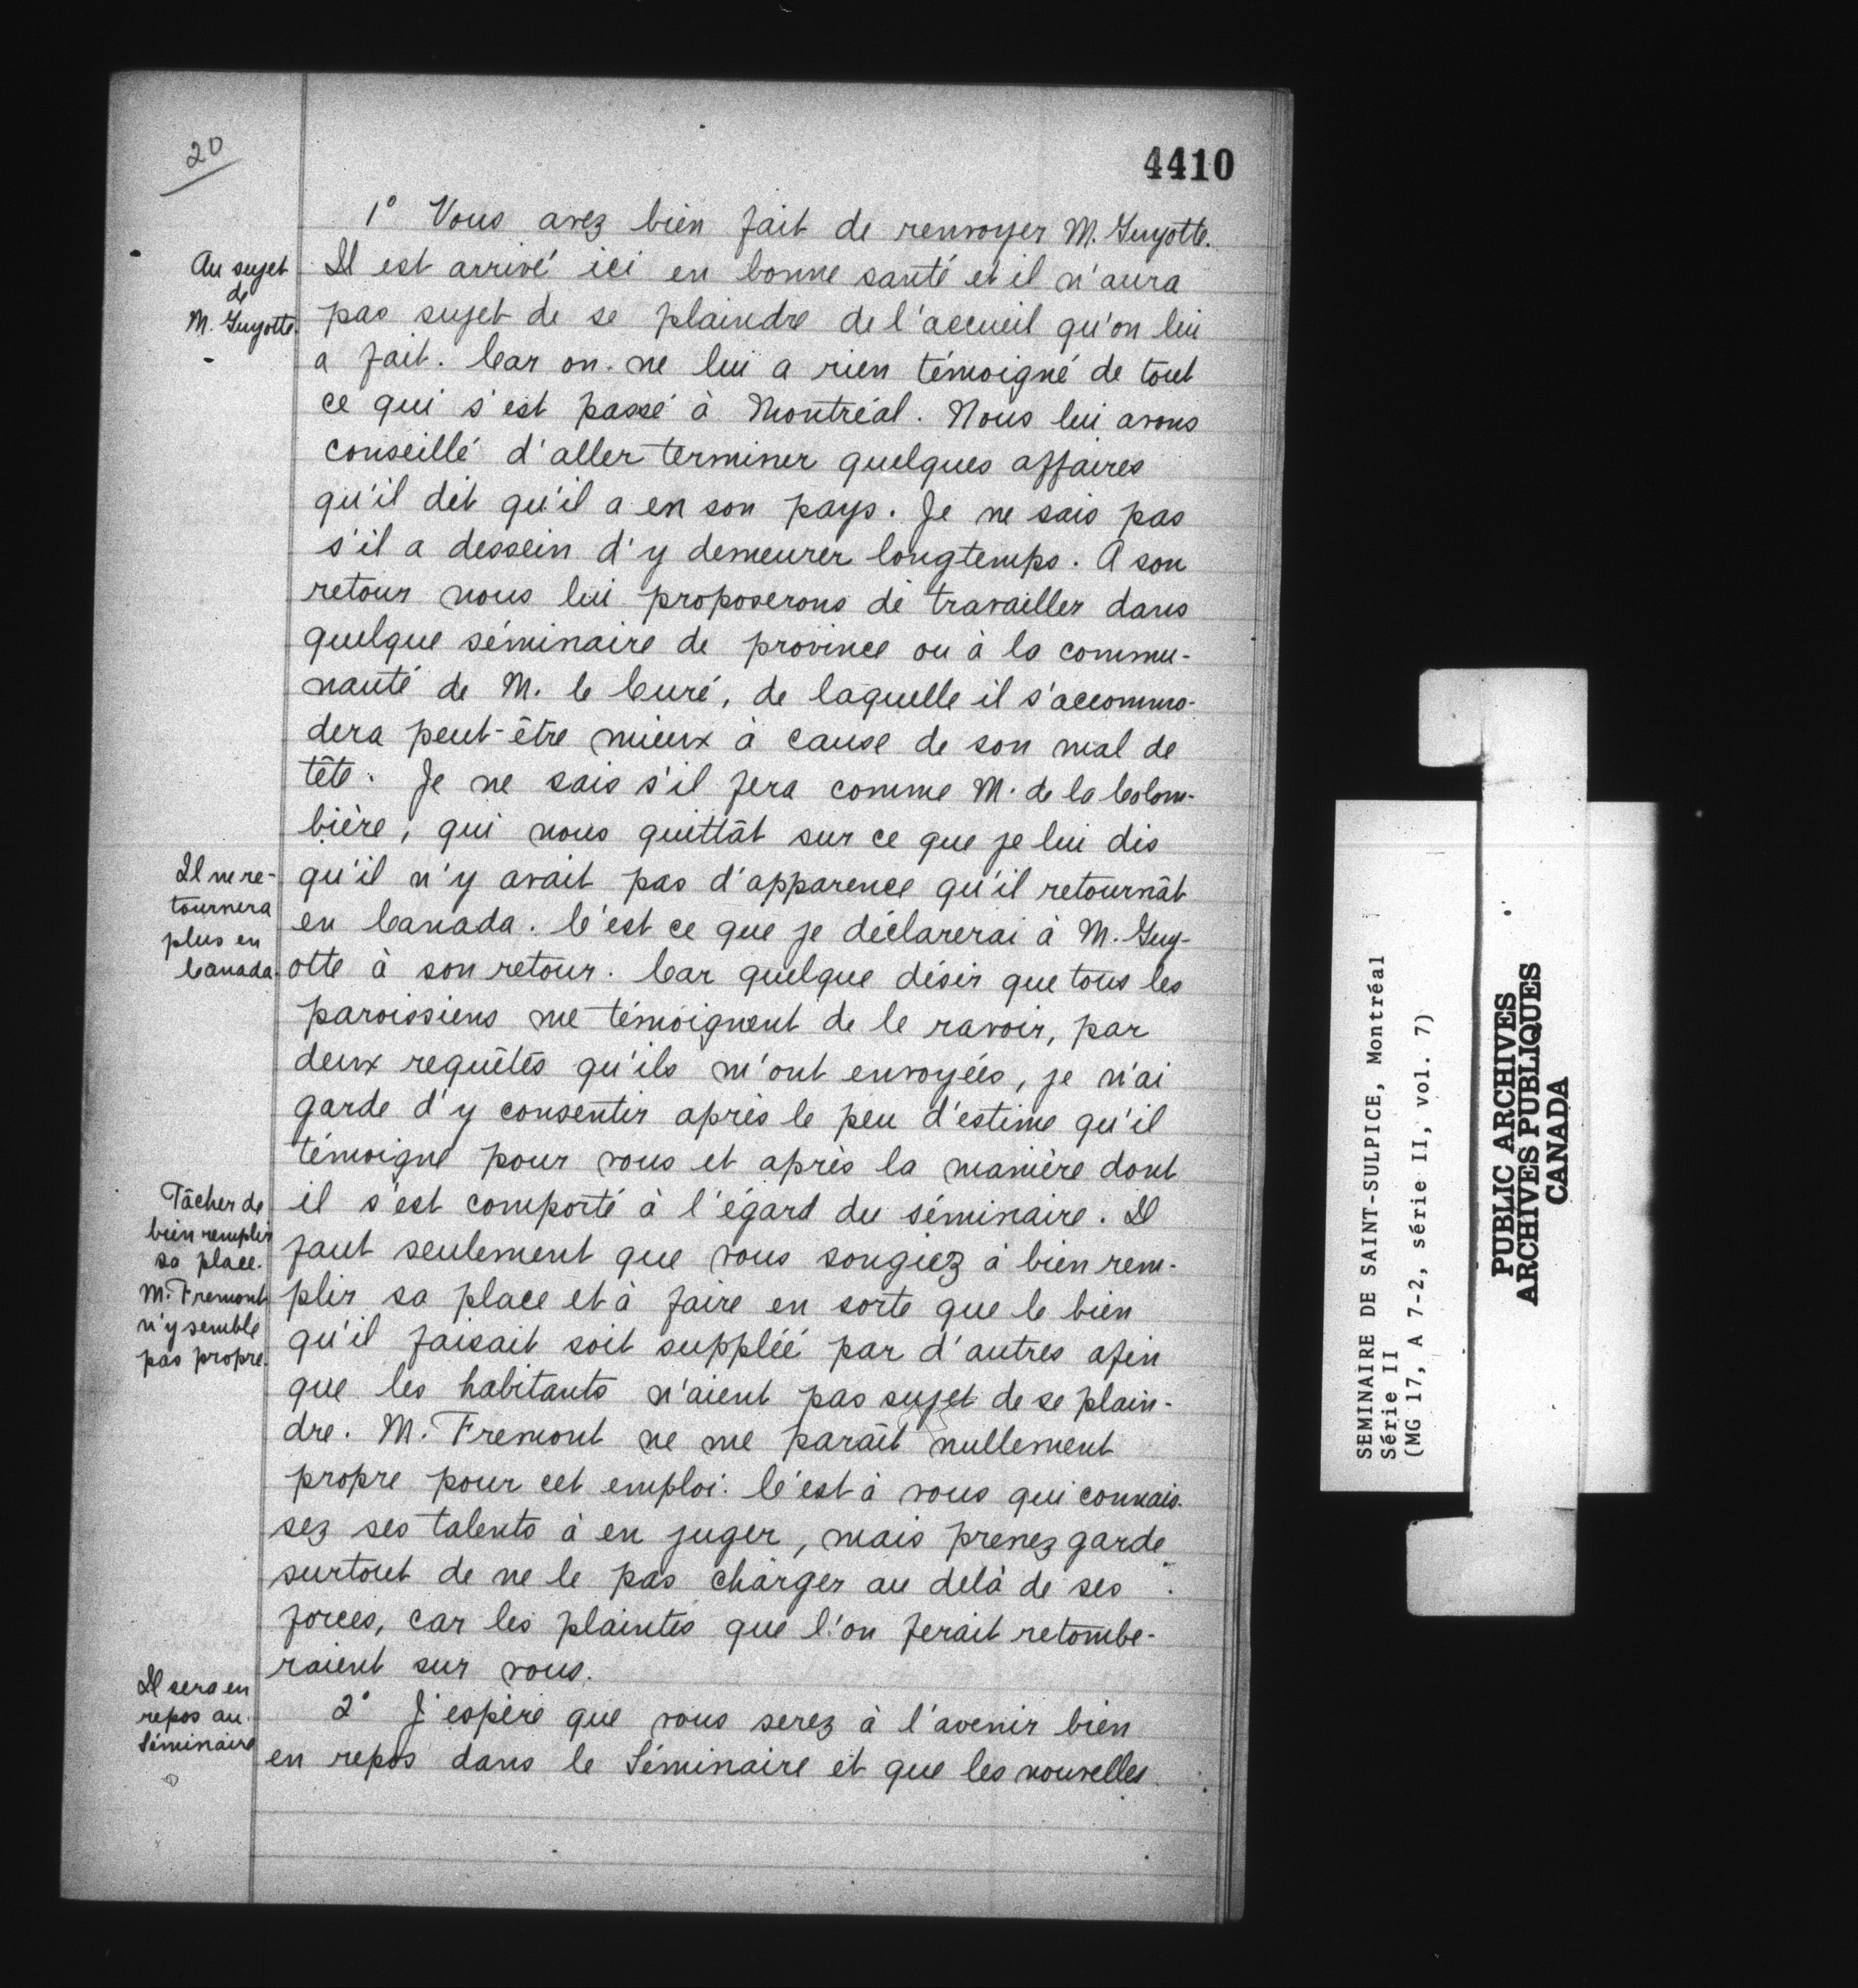 20
4410
1° Vous avez bien fait de renvoyer M. Guyotte.
Au sujet
de
M. Guyotte.
Il est arrivé ici en bonne santé et il n'aura
pas sujet de se plaindre de l'accueil qu'on lui
a fait. Car on ne lui a rien témoigné de tout
ce qui s'est passé à Montréal. Nous lui avons
conseillé d'aller terminer quelques affaires
qu'il dit qu'il a en son pays. Je ne sais pas
s'il a dessein d'y demeurer longtemps. A son
retour nous lui proposerons de travailler dans
quelque séminaire de province ou à la commu-
nauté de M. le Curé, de laquelle il s'accommo-
dera peut-être mieux à cause de son mal de
tête. Je ne sais s'il fera comme M. de la Colom-
bière, qui nous quittât sur ce que je lui dis
Il ne re-
tournera
plus en
Canada.
qu'il n'y avait pas d'apparence qu'il retournât
en Canada. C'est ce que je déclarerai à M. Guy-
otte à son retour. Car quelque désir que tous les
paroissiens me témoignent de le ravoir, par
deux requêtes qu'ils m'ont envoyées, je n'ai
garde d'y consentir après le peu d'estime qu'il
témoigne pour vous et après la manière dont
Tâcher de
bien remplir
sa place.
M. Fremont
n'y semble
pas propre.
il s'est comporté à l'égard du séminaire. Il
faut seulement que vous songiez à bien rem-
plir sa place et à faire en sorte que le bien
qu'il faisait soit suppléé par d'autres afin
que les habitants n'aient pas sujet de se plain-
dre. M. Fremont ne me paraît nullement
propre pour cet emploi. C'est à vous qui connais-
sez ses talents à en juger, mais prenez garde
surtout de ne le pas charger au delà de ses
forces, car les plaintes que l'on ferait retombe-
raient sur vous.
Il sera en
repos au
Séminaire
2° J'espère que vous serez à l'avenir bien
en repos dans le Séminaire et que les nouvelles
SEMINAIRE DE SAINT-SULPICE, Montréal
Série II
(MG 17, A 7-2, série II, vol. 7)
PUBLIC ARCHIVES
ARCHIVES PUBLIQUES
CANADA